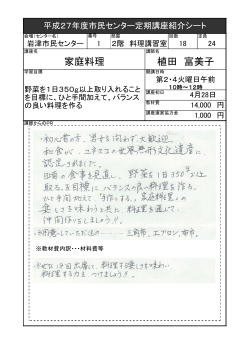 平成27年度市民センター定期講座紹介シート
会場（センター名） 番号 部屋 回数 定員
岩津市民センター 1 2階 料理講習室 18 24
講座名 講師名
家庭料理 植田 富美子
学習目標 開講日時
第2・4火曜日午前
10時〜12時
野菜を1日350g以上取り入れること
を目標に、ひと手間加えて、バランス
の良い料理を作る
講座初日
4月28日
教材費
14,000 円
講座運営協力金
1,000 円
講師からのPR
・初心者の方、男女を問わず大歓迎
和食が、ユネスコの世界無形文化遺産に
認定されました。
日頃の食事を見直し、野菜を1日350g以上
取るを目標に、バランスの良い料理を作る。
ひと手間加えて、「手作りする」家庭料理の
楽しさを味わうと共に、料理を通して、
仲間作りをしましょう!!
※用意していただくもの……三角巾、エプロン、布巾。
※教材費内訳・・・材料費等